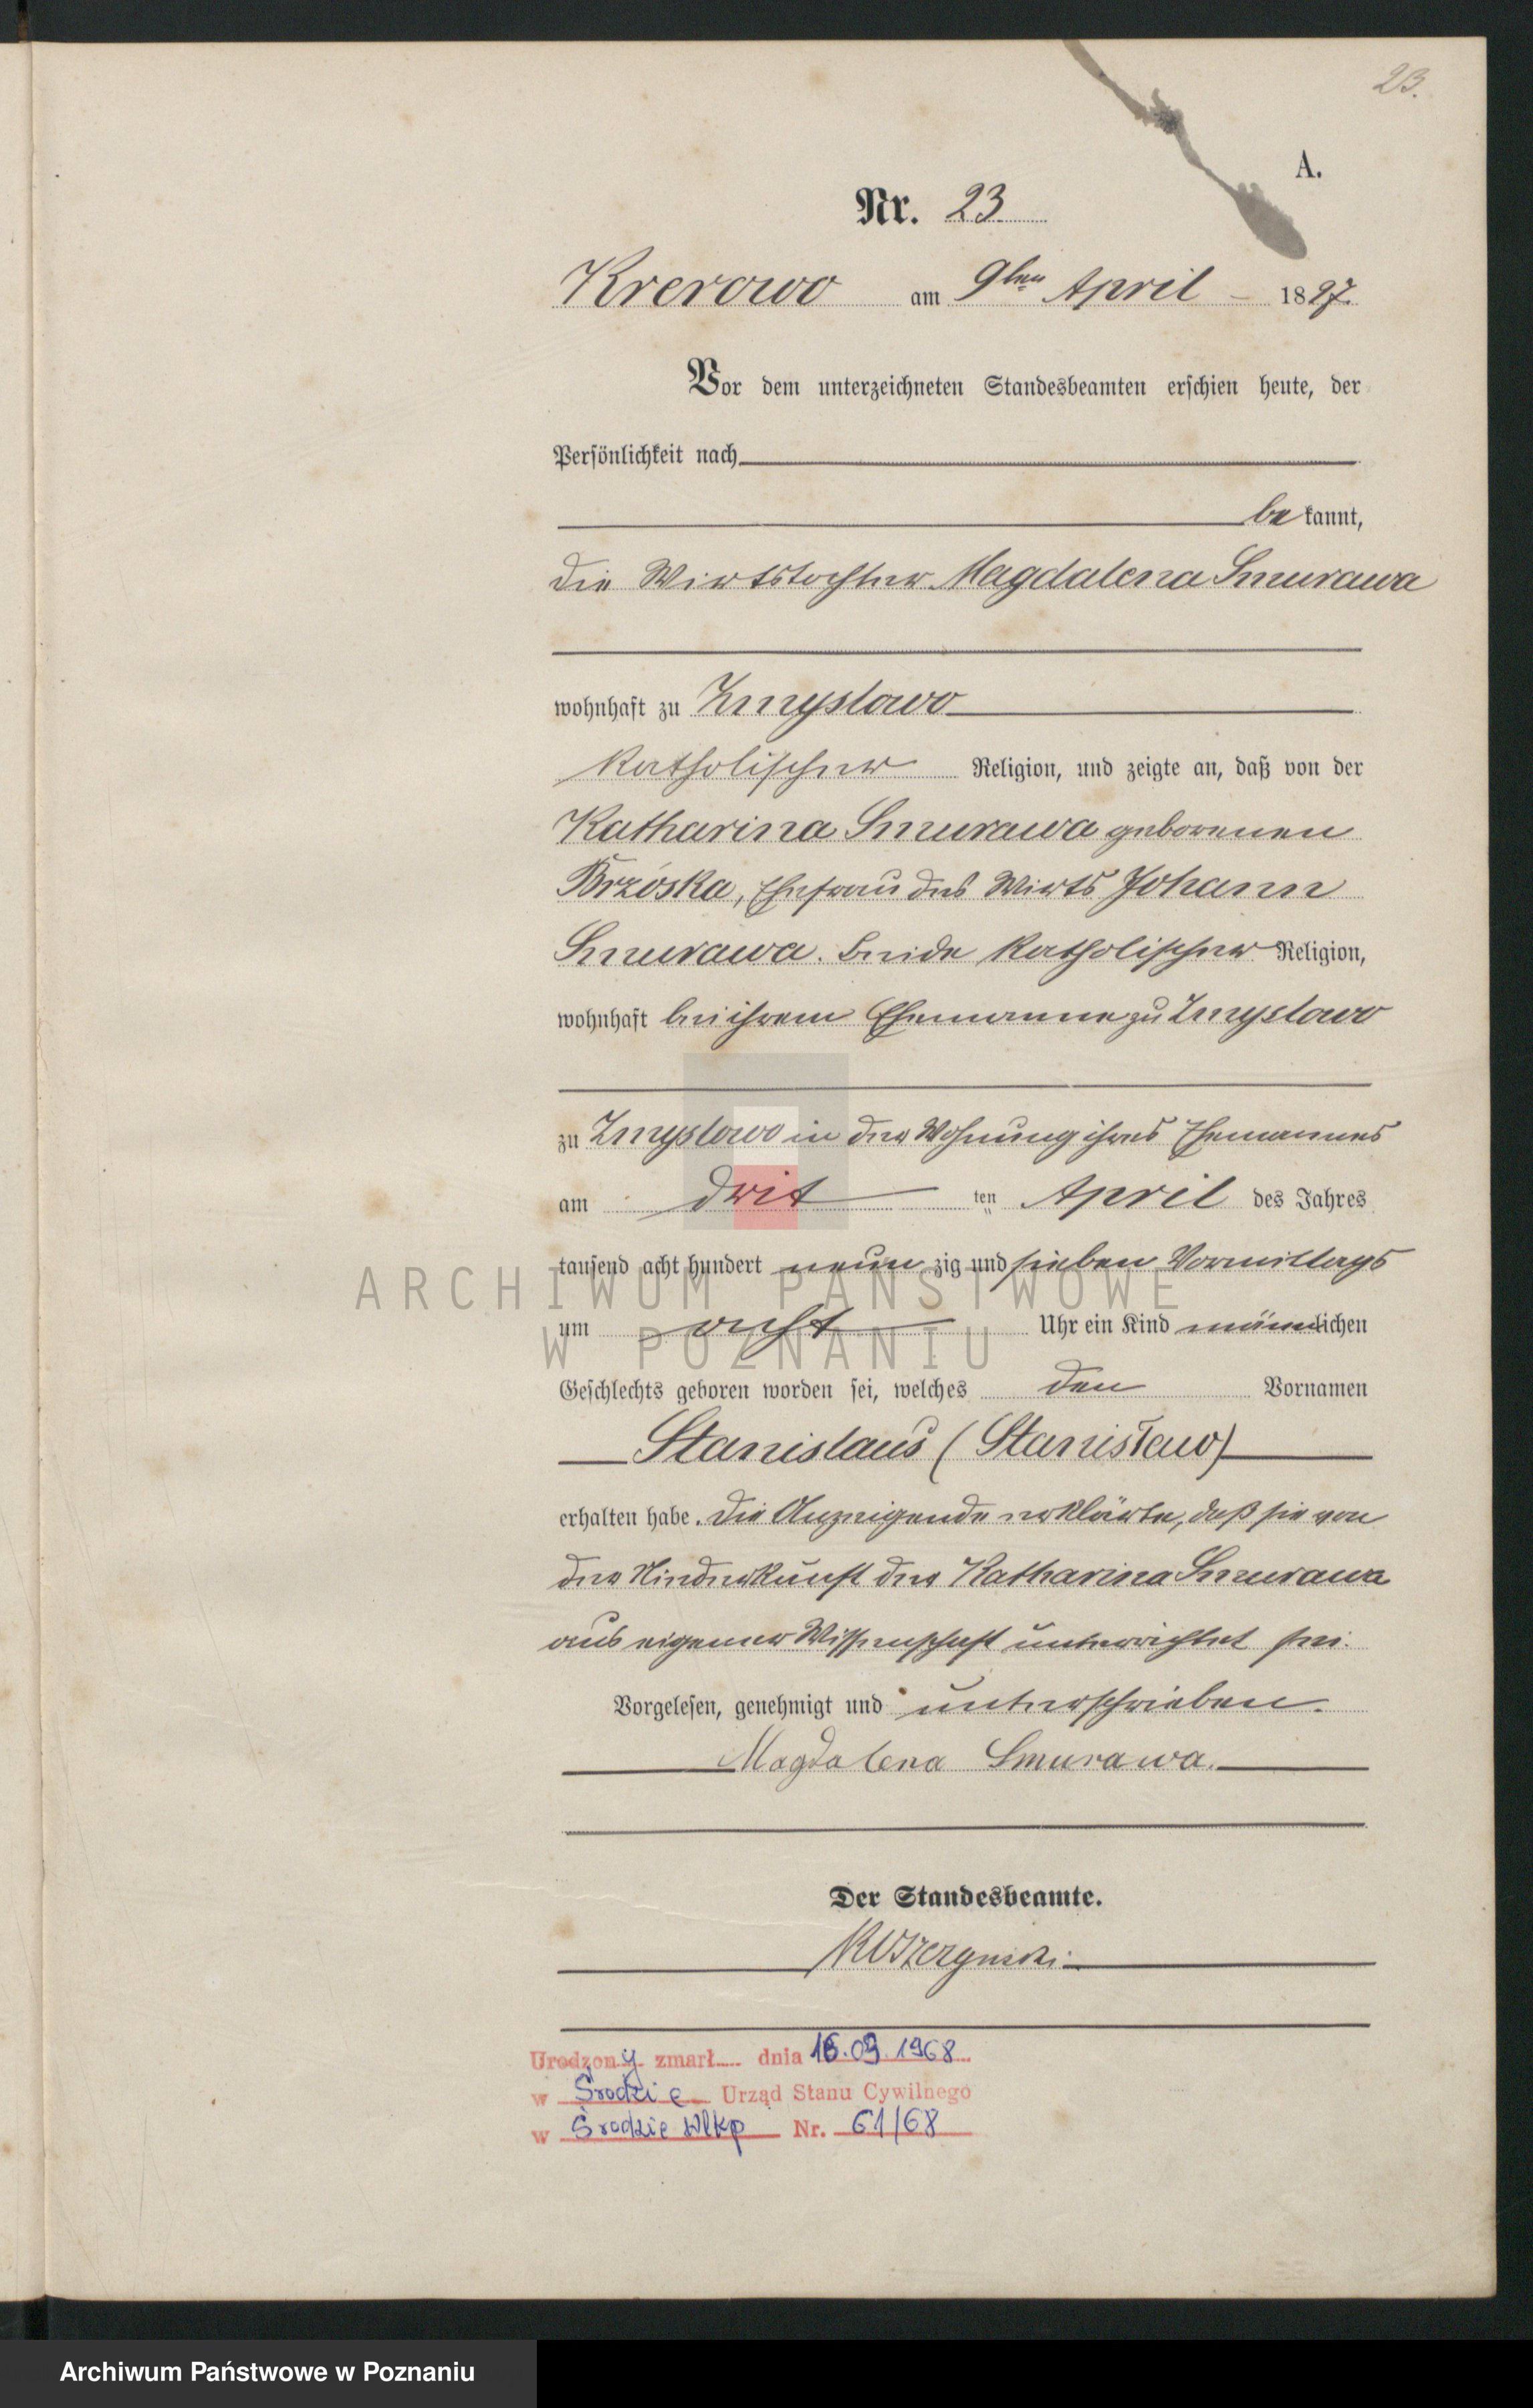 23.
A.
Nr. 23
Krerowo am 9ten April 1897.
Vor dem unterzeichneten Standesbeamten erschien heute, der
Persönlichkeit nach
bekannt,
die Wirtstochter Magdalena Smurawa
wohnhaft zu Zmyslowo
katholischer Religion, und zeigte an, daß von der
Katharina Smurawa geborenen
Brzóska, Ehefrau des Wirts Johann
Smurawa. beide katholischer Religion,
wohnhaft bei ihrem Ehemanne zu Zmyslowo
zu Zmyslowo in der Wohnung ihres Ehemannes
am drit ten April des Jahres
tausend acht hundert neun zig und sieben Vormittags
um acht Uhr ein Kind männlichen
Geschlechts geboren worden sei, welches den Vornamen
Stanislaus (Stanisław)
erhalten habe. Die Anzeigende erklärte, daß sie von
der Niederkunft der Katharina Smurawa
aus eigener Wissenschaft unterrichtet sei.
Vorgelesen, genehmigt und unterschrieben.
Magdalena Smurawa.
Der Standesbeamte.
Urodzony zmarł dnia 16.09.1968
w Środzie Urząd Stanu Cywilnego
w Środzie Wlkp Nr. 61/68
ARCHIWUM PAŃSTWOWE
W POZNANIU
Archiwum Państwowe w Poznaniu